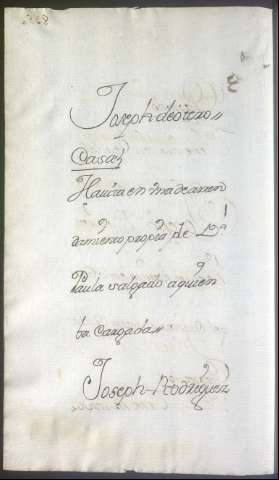 Joseph de otero,,
Casa,
Havita en una de arren
damiento propia de D.ª
Paula salgado a quien
ba Cargada,,
Joseph Rodriguez